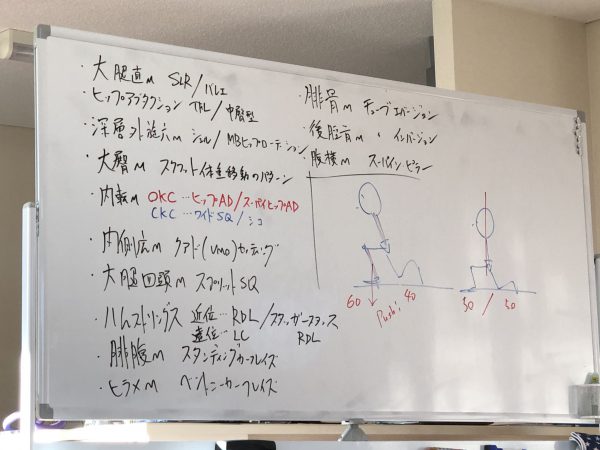 ・大腿直m SLR/バレエ
・ヒップアブダクション TFL/中臀型
・深層外旋六m シェル/MBヒップローテーション
・大臀m スクワット体重移動のパターン
・内転m OKC…ヒップAD/スーパインヒップAD
CKC…ワイドSQ/シコ
・内側広m クアド(VMO)セッティング
・大腿四頭m スプリットSQ
・ハムストリングス 近位…RDL/スタッガースタンス
遠位…LC RDL
・腓腹m スタンディングカーフレイズ
・ヒラメm ベントニーカーフレイズ
・腓骨m チューブエバージョン
・後脛骨m 〃 インバージョン
・腹横m スーパイン・ピラー
60 Push! 40
50 / 50